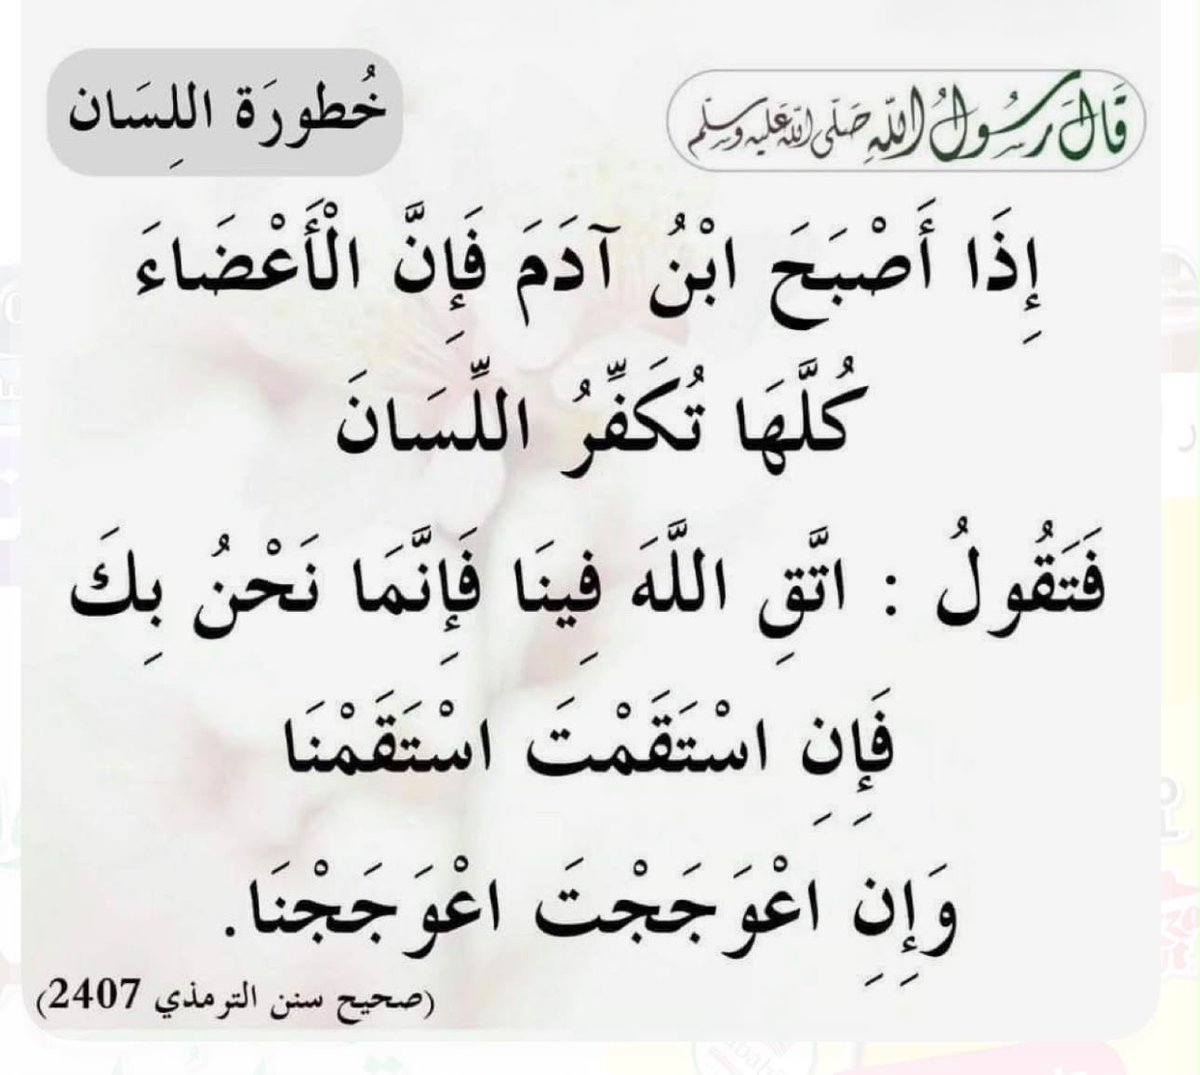 قَالَ رَسُولُ اللَّهِ صَلَّى اللَّهُ عَلَيْهِ وَسَلَّم
خُطورَة اللِسَان
إِذَا أَصْبَحَ ابْنُ آدَمَ فَإِنَّ الْأَعْضَاءَ
كُلَّهَا تُكَفِّرُ اللِّسَانَ
فَتَقُولُ : اتَّقِ اللَّهَ فِينَا فَإِنَّمَا نَحْنُ بِكَ
فَإِنِ اسْتَقَمْتَ اسْتَقَمْنَا
وَإِنِ اعْوَجَجْتَ اعْوَجَجْنَا.
(صحيح سنن الترمذي 2407)